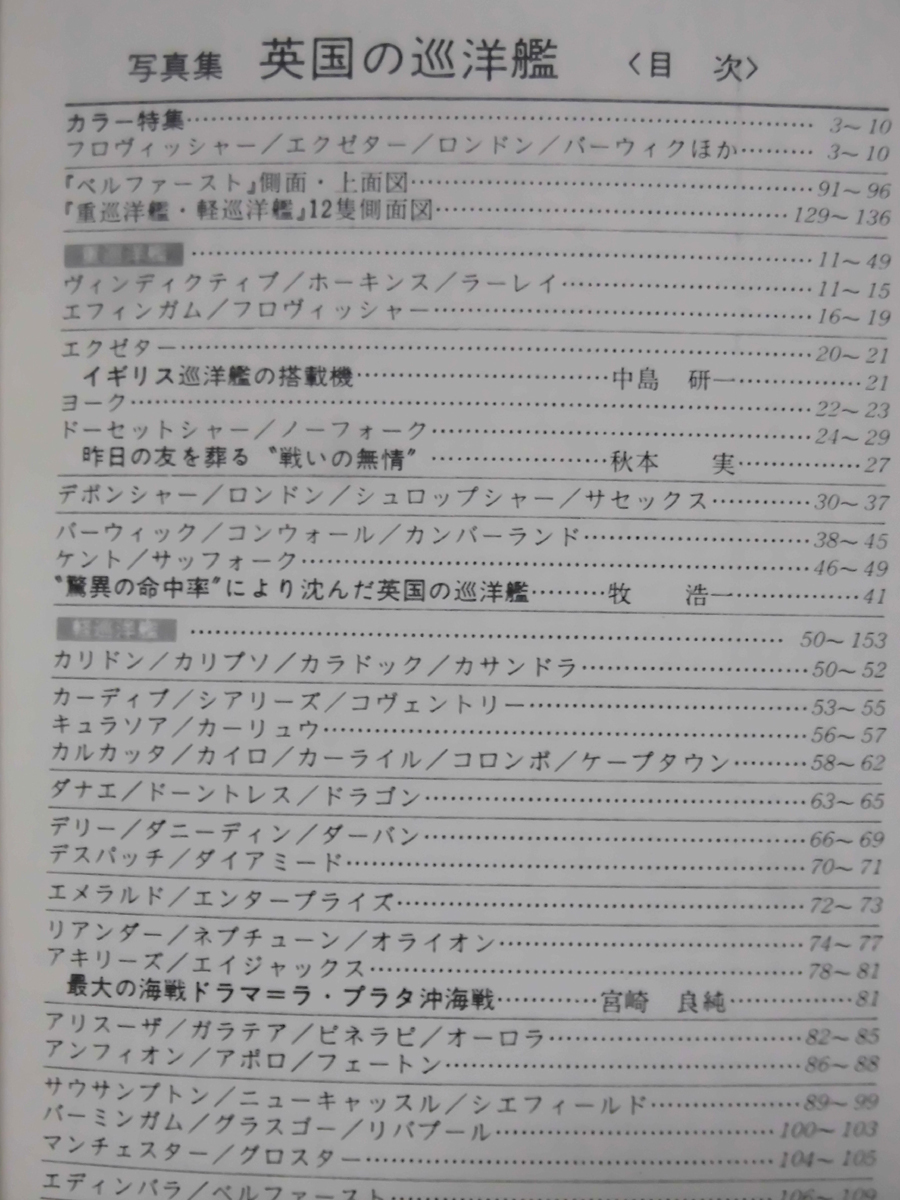 写真集 英国の巡洋艦 〈目 次〉
カラー特集 3〜10
フロヴィッシャー／エクゼター／ロンドン／バーウィクほか 3〜10
『ベルファースト』側面・上面図 91〜96
『重巡洋艦・軽巡洋艦』12隻側面図 129〜136
重巡洋艦 11〜49
ヴィンディクティブ／ホーキンス／ラーレイ 11〜15
エフィンガム／フロヴィッシャー 16〜19
エクゼター 20〜21
イギリス巡洋艦の搭載機 中島 研一 21
ヨーク 22〜23
ドーセットシャー／ノーフォーク 24〜29
昨日の友を葬る〝戦いの無情〞 秋本 実 27
デボンシャー／ロンドン／シュロップシャー／サセックス 30〜37
バーウィック／コンウォール／カンバーランド 38〜45
ケント／サッフォーク 46〜49
〝驚異の命中率〞により沈んだ英国の巡洋艦 牧 浩一 41
軽巡洋艦 50〜153
カリドン／カリプソ／カラドック／カサンドラ 50〜52
カーディブ／シアリーズ／コヴェントリー 53〜55
キュラソア／カーリュウ 56〜57
カルカッタ／カイロ／カーライル／コロンボ／ケープタウン 58〜62
ダナエ／ドーントレス／ドラゴン 63〜65
デリー／ダニーディン／ダーバン 66〜69
デスパッチ／ダイアミード 70〜71
エメラルド／エンタープライズ 72〜73
リアンダー／ネプチューン／オライオン 74〜77
アキリーズ／エイジャックス 78〜81
最大の海戦ドラマ＝ラ・プラタ沖海戦 宮崎 良純 81
アリスーザ／ガラテア／ピネラピ／オーロラ 82〜85
アンフィオン／アポロ／フェートン 86〜88
サウサンプトン／ニューキャッスル／シエフィールド 89〜99
バーミンガム／グラスゴー／リバプール 100〜103
マンチェスター／グロスター 104〜105
エディンバラ／ベルファースト